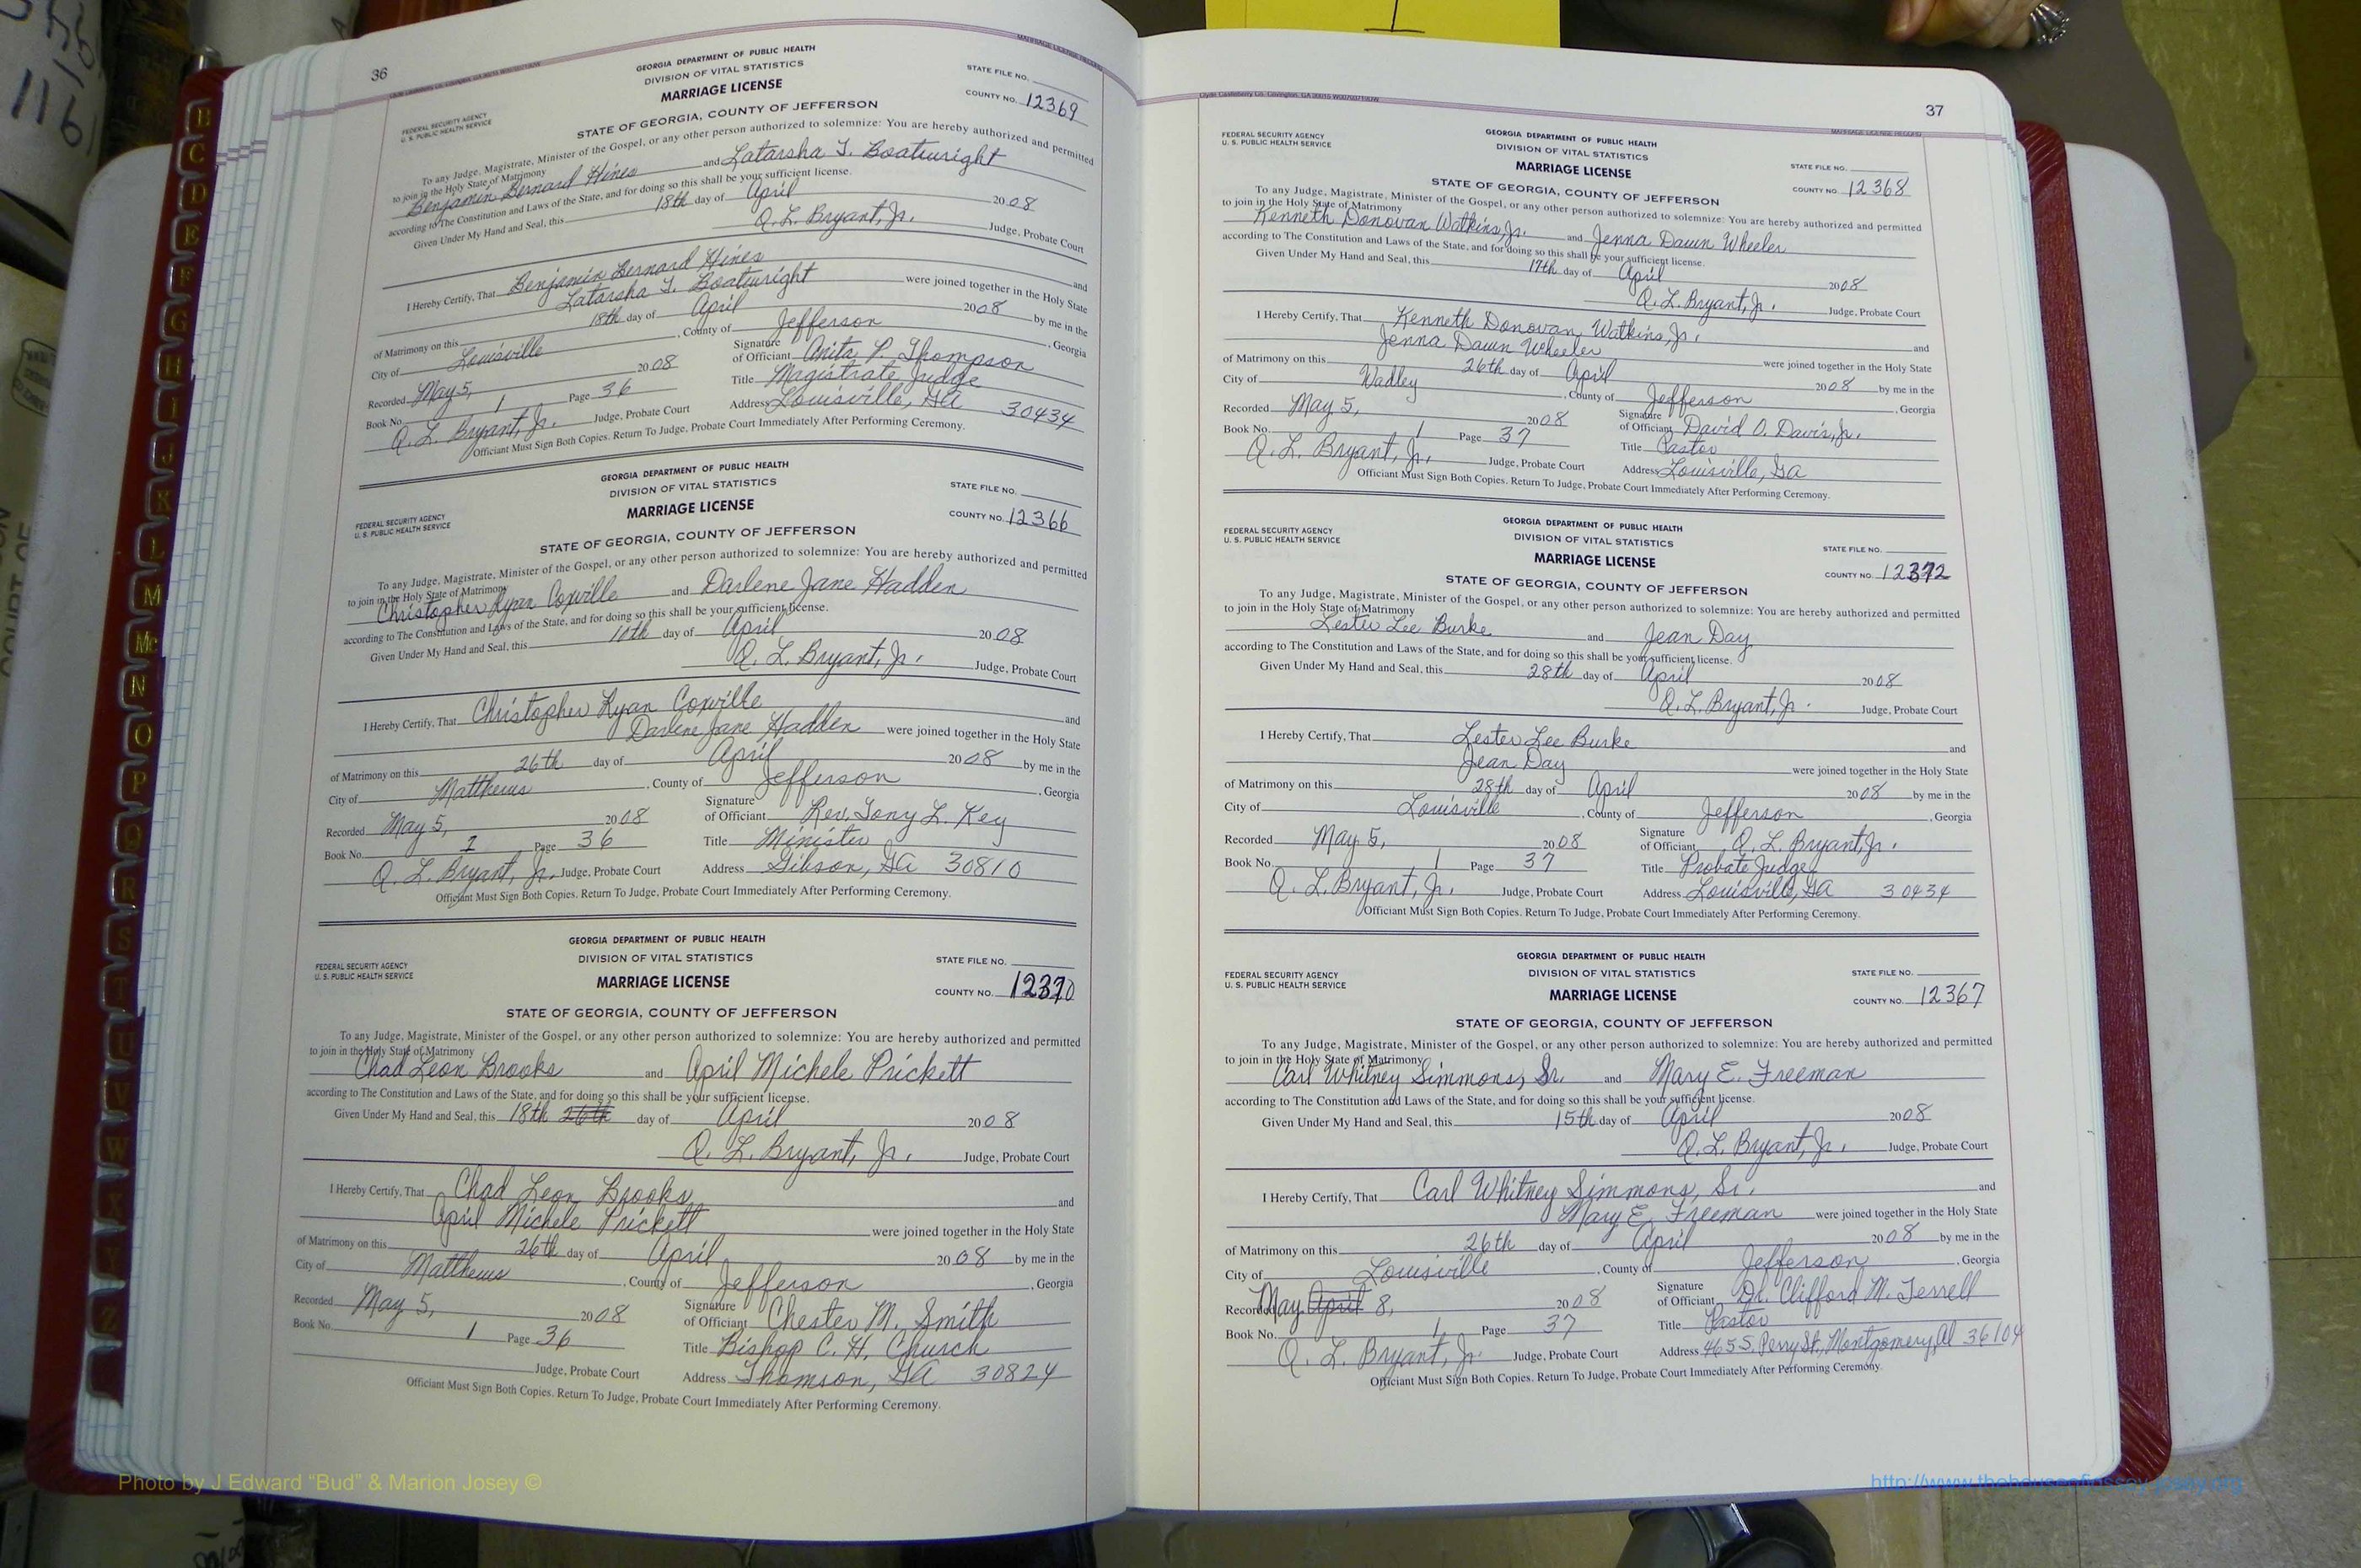 36
GEORGIA DEPARTMENT OF PUBLIC HEALTH
DIVISION OF VITAL STATISTICS
MARRIAGE LICENSE
STATE OF GEORGIA, COUNTY OF JEFFERSON
FEDERAL SECURITY AGENCY
U. S. PUBLIC HEALTH SERVICE
STATE FILE NO.
COUNTY NO. 12369
To any Judge, Magistrate, Minister of the Gospel, or any other person authorized to solemnize: You are hereby authorized and permitted
to join in the Holy State of Matrimony
Benjamin Bernard Hines and Latarsha T. Boatwright
according to The Constitution and Laws of the State, and for doing so this shall be your sufficient license.
Given Under My Hand and Seal, this 18th day of April 2008
Q. L. Bryant, Jr. Judge, Probate Court
I Hereby Certify, That Benjamin Bernard Hines and
Latarsha T. Boatwright were joined together in the Holy State
of Matrimony on this 18th day of April 2008 by me in the
City of Louisville, County of Jefferson, Georgia
Recorded May 5, 2008
Signature of Officiant Anita P. Thompson
Book No. 1 Page 36
Title Magistrate Judge
Q. L. Bryant, Jr. Judge, Probate Court
Address Louisville, GA 30434
Officiant Must Sign Both Copies. Return To Judge, Probate Court Immediately After Performing Ceremony.
GEORGIA DEPARTMENT OF PUBLIC HEALTH
DIVISION OF VITAL STATISTICS
MARRIAGE LICENSE
STATE OF GEORGIA, COUNTY OF JEFFERSON
FEDERAL SECURITY AGENCY
U. S. PUBLIC HEALTH SERVICE
STATE FILE NO.
COUNTY NO. 12366
To any Judge, Magistrate, Minister of the Gospel, or any other person authorized to solemnize: You are hereby authorized and permitted
to join in the Holy State of Matrimony
Christopher Ryan Coxville and Darlene Jane Hadden
according to The Constitution and Laws of the State, and for doing so this shall be your sufficient license.
Given Under My Hand and Seal, this 10th day of April 2008
Q. L. Bryant, Jr. Judge, Probate Court
I Hereby Certify, That Christopher Ryan Coxville and
Darlene Jane Hadden were joined together in the Holy State
of Matrimony on this 26th day of April 2008 by me in the
City of Matthews, County of Jefferson, Georgia
Recorded May 5, 2008
Signature of Officiant Rev. Tony L. Key
Book No. 1 Page 36
Title Minister
Q. L. Bryant, Jr. Judge, Probate Court
Address Gibson, GA 30810
Officiant Must Sign Both Copies. Return To Judge, Probate Court Immediately After Performing Ceremony.
GEORGIA DEPARTMENT OF PUBLIC HEALTH
DIVISION OF VITAL STATISTICS
MARRIAGE LICENSE
STATE OF GEORGIA, COUNTY OF JEFFERSON
FEDERAL SECURITY AGENCY
U. S. PUBLIC HEALTH SERVICE
STATE FILE NO.
COUNTY NO. 12370
To any Judge, Magistrate, Minister of the Gospel, or any other person authorized to solemnize: You are hereby authorized and permitted
to join in the Holy State of Matrimony
Chad Leon Brooks and April Michele Prickett
according to The Constitution and Laws of the State, and for doing so this shall be your sufficient license.
Given Under My Hand and Seal, this 18th 26th day of April 2008
Q. L. Bryant, Jr. Judge, Probate Court
I Hereby Certify, That Chad Leon Brooks and
April Michele Prickett were joined together in the Holy State
of Matrimony on this 26th day of April 2008 by me in the
City of Matthews, County of Jefferson, Georgia
Recorded May 5, 2008
Signature of Officiant Chester M. Smith
Book No. 1 Page 36
Title Bishop C. H. Church
Judge, Probate Court
Address Thomson, GA 30824
Officiant Must Sign Both Copies. Return To Judge, Probate Court Immediately After Performing Ceremony.
37
MARRIAGE LICENSE RECORD
GEORGIA DEPARTMENT OF PUBLIC HEALTH
DIVISION OF VITAL STATISTICS
MARRIAGE LICENSE
STATE OF GEORGIA, COUNTY OF JEFFERSON
FEDERAL SECURITY AGENCY
U. S. PUBLIC HEALTH SERVICE
STATE FILE NO.
COUNTY NO. 12368
To any Judge, Magistrate, Minister of the Gospel, or any other person authorized to solemnize: You are hereby authorized and permitted
to join in the Holy State of Matrimony
Kenneth Donovan Watkins, Jr. and Jenna Dawn Wheeler
according to The Constitution and Laws of the State, and for doing so this shall be your sufficient license.
Given Under My Hand and Seal, this 17th day of April 2008
Q. L. Bryant, Jr. Judge, Probate Court
I Hereby Certify, That Kenneth Donovan Watkins, Jr. and
Jenna Dawn Wheeler were joined together in the Holy State
of Matrimony on this 26th day of April 2008 by me in the
City of Wadley, County of Jefferson, Georgia
Recorded May 5, 2008
Signature of Officiant David O. Davis, Jr.
Book No. 1 Page 37
Title Pastor
Q. L. Bryant, Jr. Judge, Probate Court
Address Louisville, GA
Officiant Must Sign Both Copies. Return To Judge, Probate Court Immediately After Performing Ceremony.
GEORGIA DEPARTMENT OF PUBLIC HEALTH
DIVISION OF VITAL STATISTICS
MARRIAGE LICENSE
STATE OF GEORGIA, COUNTY OF JEFFERSON
FEDERAL SECURITY AGENCY
U. S. PUBLIC HEALTH SERVICE
STATE FILE NO.
COUNTY NO. 12372
To any Judge, Magistrate, Minister of the Gospel, or any other person authorized to solemnize: You are hereby authorized and permitted
to join in the Holy State of Matrimony
Lester Lee Burke and Jean Day
according to The Constitution and Laws of the State, and for doing so this shall be your sufficient license.
Given Under My Hand and Seal, this 28th day of April 2008
Q. L. Bryant, Jr. Judge, Probate Court
I Hereby Certify, That Lester Lee Burke and
Jean Day were joined together in the Holy State
of Matrimony on this 28th day of April 2008 by me in the
City of Louisville, County of Jefferson, Georgia
Recorded May 5, 2008
Signature of Officiant Q. L. Bryant, Jr.
Book No. 1 Page 37
Title Probate Judge
Q. L. Bryant, Jr. Judge, Probate Court
Address Louisville, GA 30434
Officiant Must Sign Both Copies. Return To Judge, Probate Court Immediately After Performing Ceremony.
GEORGIA DEPARTMENT OF PUBLIC HEALTH
DIVISION OF VITAL STATISTICS
MARRIAGE LICENSE
STATE OF GEORGIA, COUNTY OF JEFFERSON
FEDERAL SECURITY AGENCY
U. S. PUBLIC HEALTH SERVICE
STATE FILE NO.
COUNTY NO. 12367
To any Judge, Magistrate, Minister of the Gospel, or any other person authorized to solemnize: You are hereby authorized and permitted
to join in the Holy State of Matrimony
Carl Whitney Simmons, Sr. and Mary E. Freeman
according to The Constitution and Laws of the State, and for doing so this shall be your sufficient license.
Given Under My Hand and Seal, this 15th day of April 2008
Q. L. Bryant, Jr. Judge, Probate Court
I Hereby Certify, That Carl Whitney Simmons, Sr. and
Mary E. Freeman were joined together in the Holy State
of Matrimony on this 26th day of April 2008 by me in the
City of Louisville, County of Jefferson, Georgia
Recorded May April 8, 2008
Signature of Officiant Dr. Clifford M. Terrell
Book No. 1 Page 37
Title Pastor
Q. L. Bryant, Jr. Judge, Probate Court
Address 465 S. Perry St., Montgomery, Al 36104
Officiant Must Sign Both Copies. Return To Judge, Probate Court Immediately After Performing Ceremony.
B
C
D
E
F
G
H
I
J
K
L
M
Mc
N
O
P
Q
R
S
T
U
V
W
X
Y
Z
Photo by J Edward “Bud” & Marion Josey ©